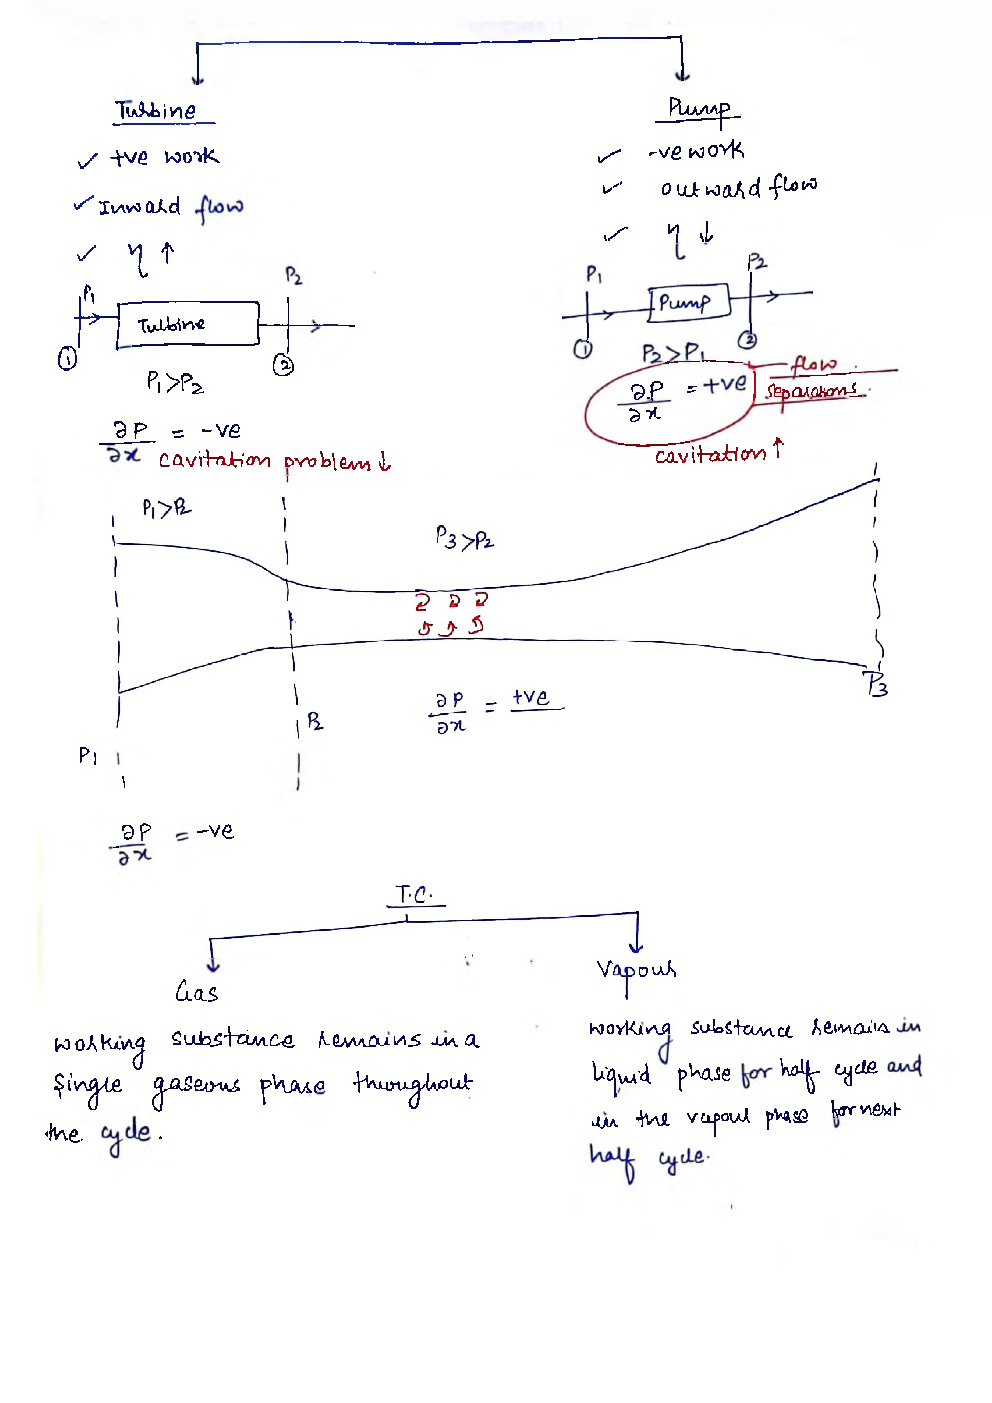 Turbine
✓ +ve work
✓ Inward flow
✓ η ↑
P1
P2
Turbine
1
2
P1>P2
∂P/∂x = -ve
cavitation problem ↓
Pump
✓ -ve work
✓ outward flow
✓ η ↓
P1
P2
Pump
1
2
P2>P1
∂P/∂x = +ve
flow
separations.
cavitation ↑
P1>P2
P3>P2
P3
∂P/∂x = +ve
P2
P1
∂P/∂x = -ve
T.C.
Gas
working substance remains in a
single gaseous phase throughout
the cycle.
Vapour
working substance remains in
liquid phase for half cycle and
in the vapour phase for next
half cycle.